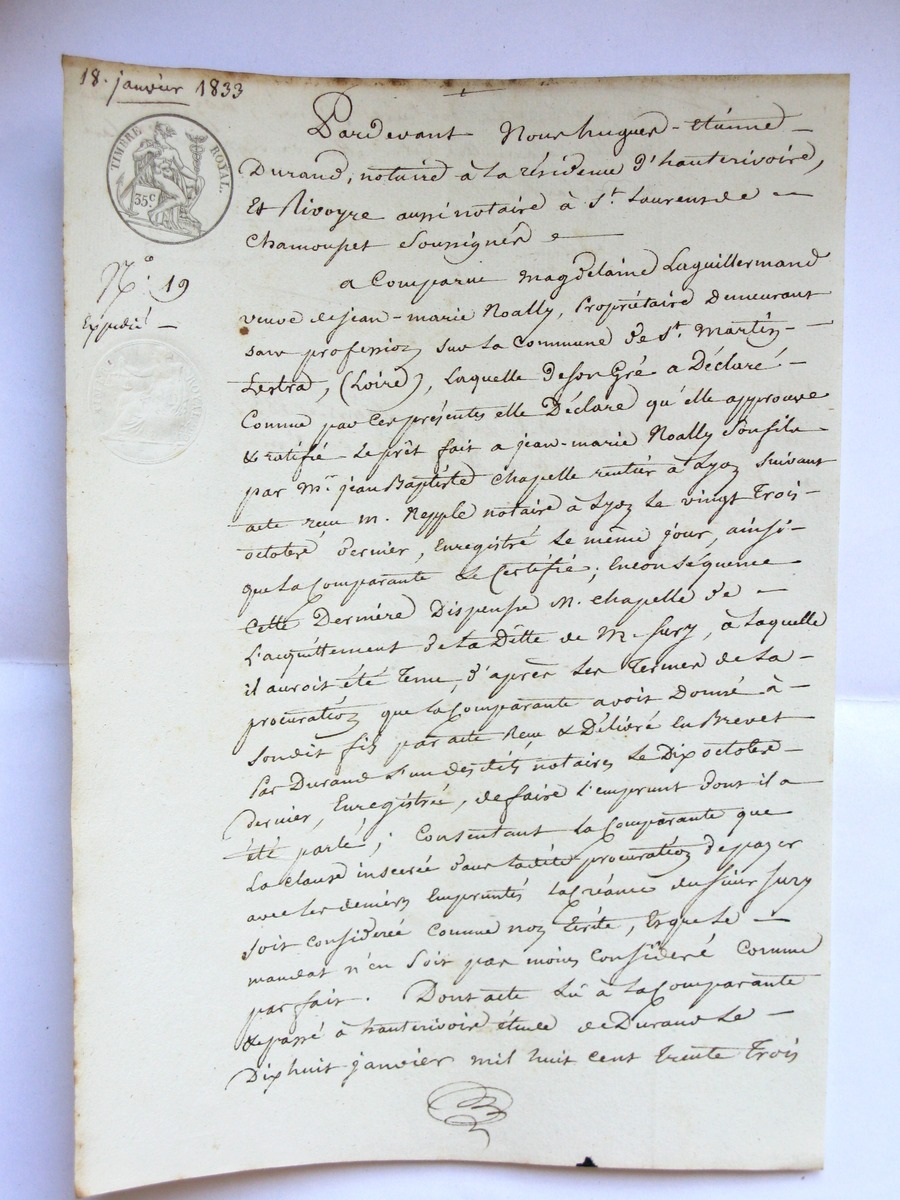 18. janvier 1833
TIMBRE ROYAL.
35c
N° 19
Expedié
Pardevant Nous hugues-etienne
Durand, notaire à la résidence d'hauterivoire,
Et Rivoyre aussi notaire à St. Laurent de
Chamousset Soussignés
a Comparue magdelaine Laguillermand
veuve de jean-marie Noally, Propriétaire Demeurant
sans profession sur la Commune de St. Martin
Lestra, (Loire), Laquelle de son Gré a Déclaré
Comme par ces présentes elle Déclare qu'elle approuve
& ratifie Le prêt fait a jean-marie Noally Son fils
par Mr. jean Baptiste Chapelle rentier à Lyon Suivant
acte reçu m. Repple notaire à Lyon Le vingt Trois
octobre dernier, Enregistré Le même jour, ainsi
que La Comparante Le Certifie; En conséquence
Cette Dernière Dispense M. Chapelle de
L'acquittement de La Dette de M. Jury, à Laquelle
il auroit été Tenu, d'après Les Termes de La
procuration que La Comparante avoit Donné à
Sondit fils par acte Reçu & Délivré En Brevet
Par Durand L'un desdits notaires Le Dix octobre
dernier, Enregistrée, de faire L'emprunt dont il a
été parlé; Consentant La Comparante que
La clause inscerée dans Ladite procuration de payer
avec Les deniers Empruntés La Créance du Sieur Jury
soit considerée Comme non Ecrite, Et que Le
mandat n'en Soit pas moins Consideré Comme
parfait. Dont acte Lu à La Comparante
& passé à hauterivoire étude de Durand Le
Dix huit janvier mil huit cent Trente Trois